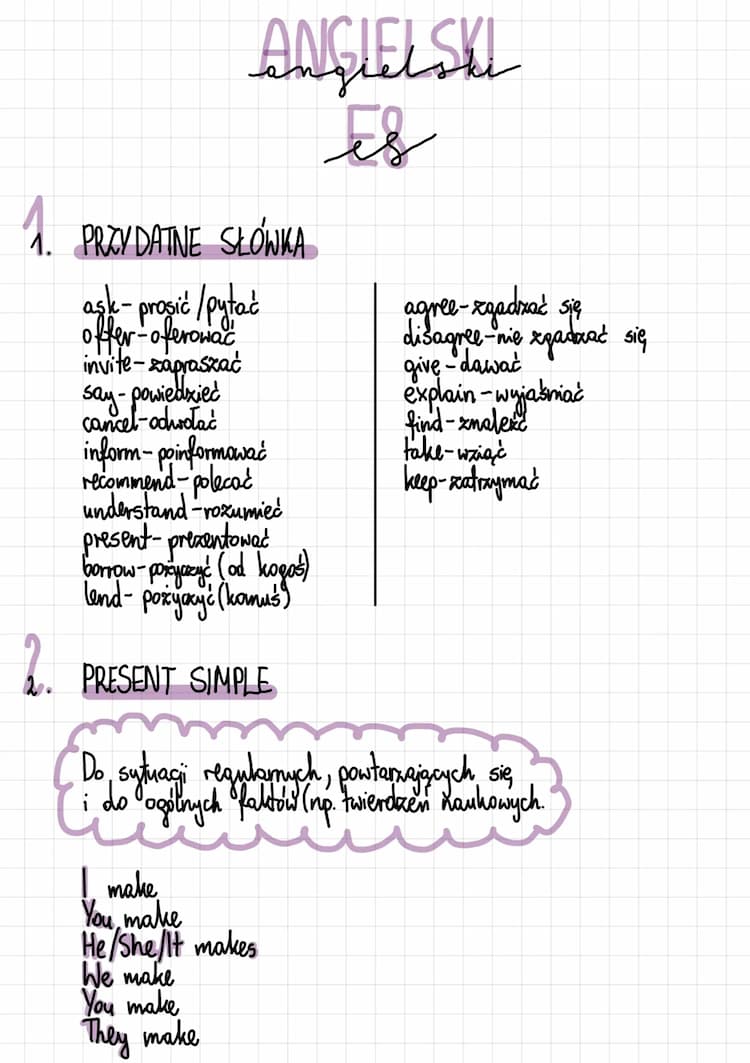 ANGIELSKI
angielski
E8
e8
1.
1. PRZYDATNE SŁÓWKA
ask- prosić/pytać
offer-oferować
invite-zapraszać
say-powiedzieć
cancel-odwołać
inform-poinformować
recommend-polecać
understand-rozumieć
present-prezentować
borrow-pożyczyć (od kogoś)
lend- pożyczyć (komuś)
agree-zgadzać się
disagree-nie zgadzać się
give-dawać
explain-wyjaśniać
find-znaleźć
take-wziąć
keep-zatrzymać
2.
2. PRESENT SIMPLE
Do sytuacji regularnych, powtarzających się
i do ogólnych faktów (np. twierdzeń naukowych.
I make
You make
He/She/It makes
We make
You make
They make